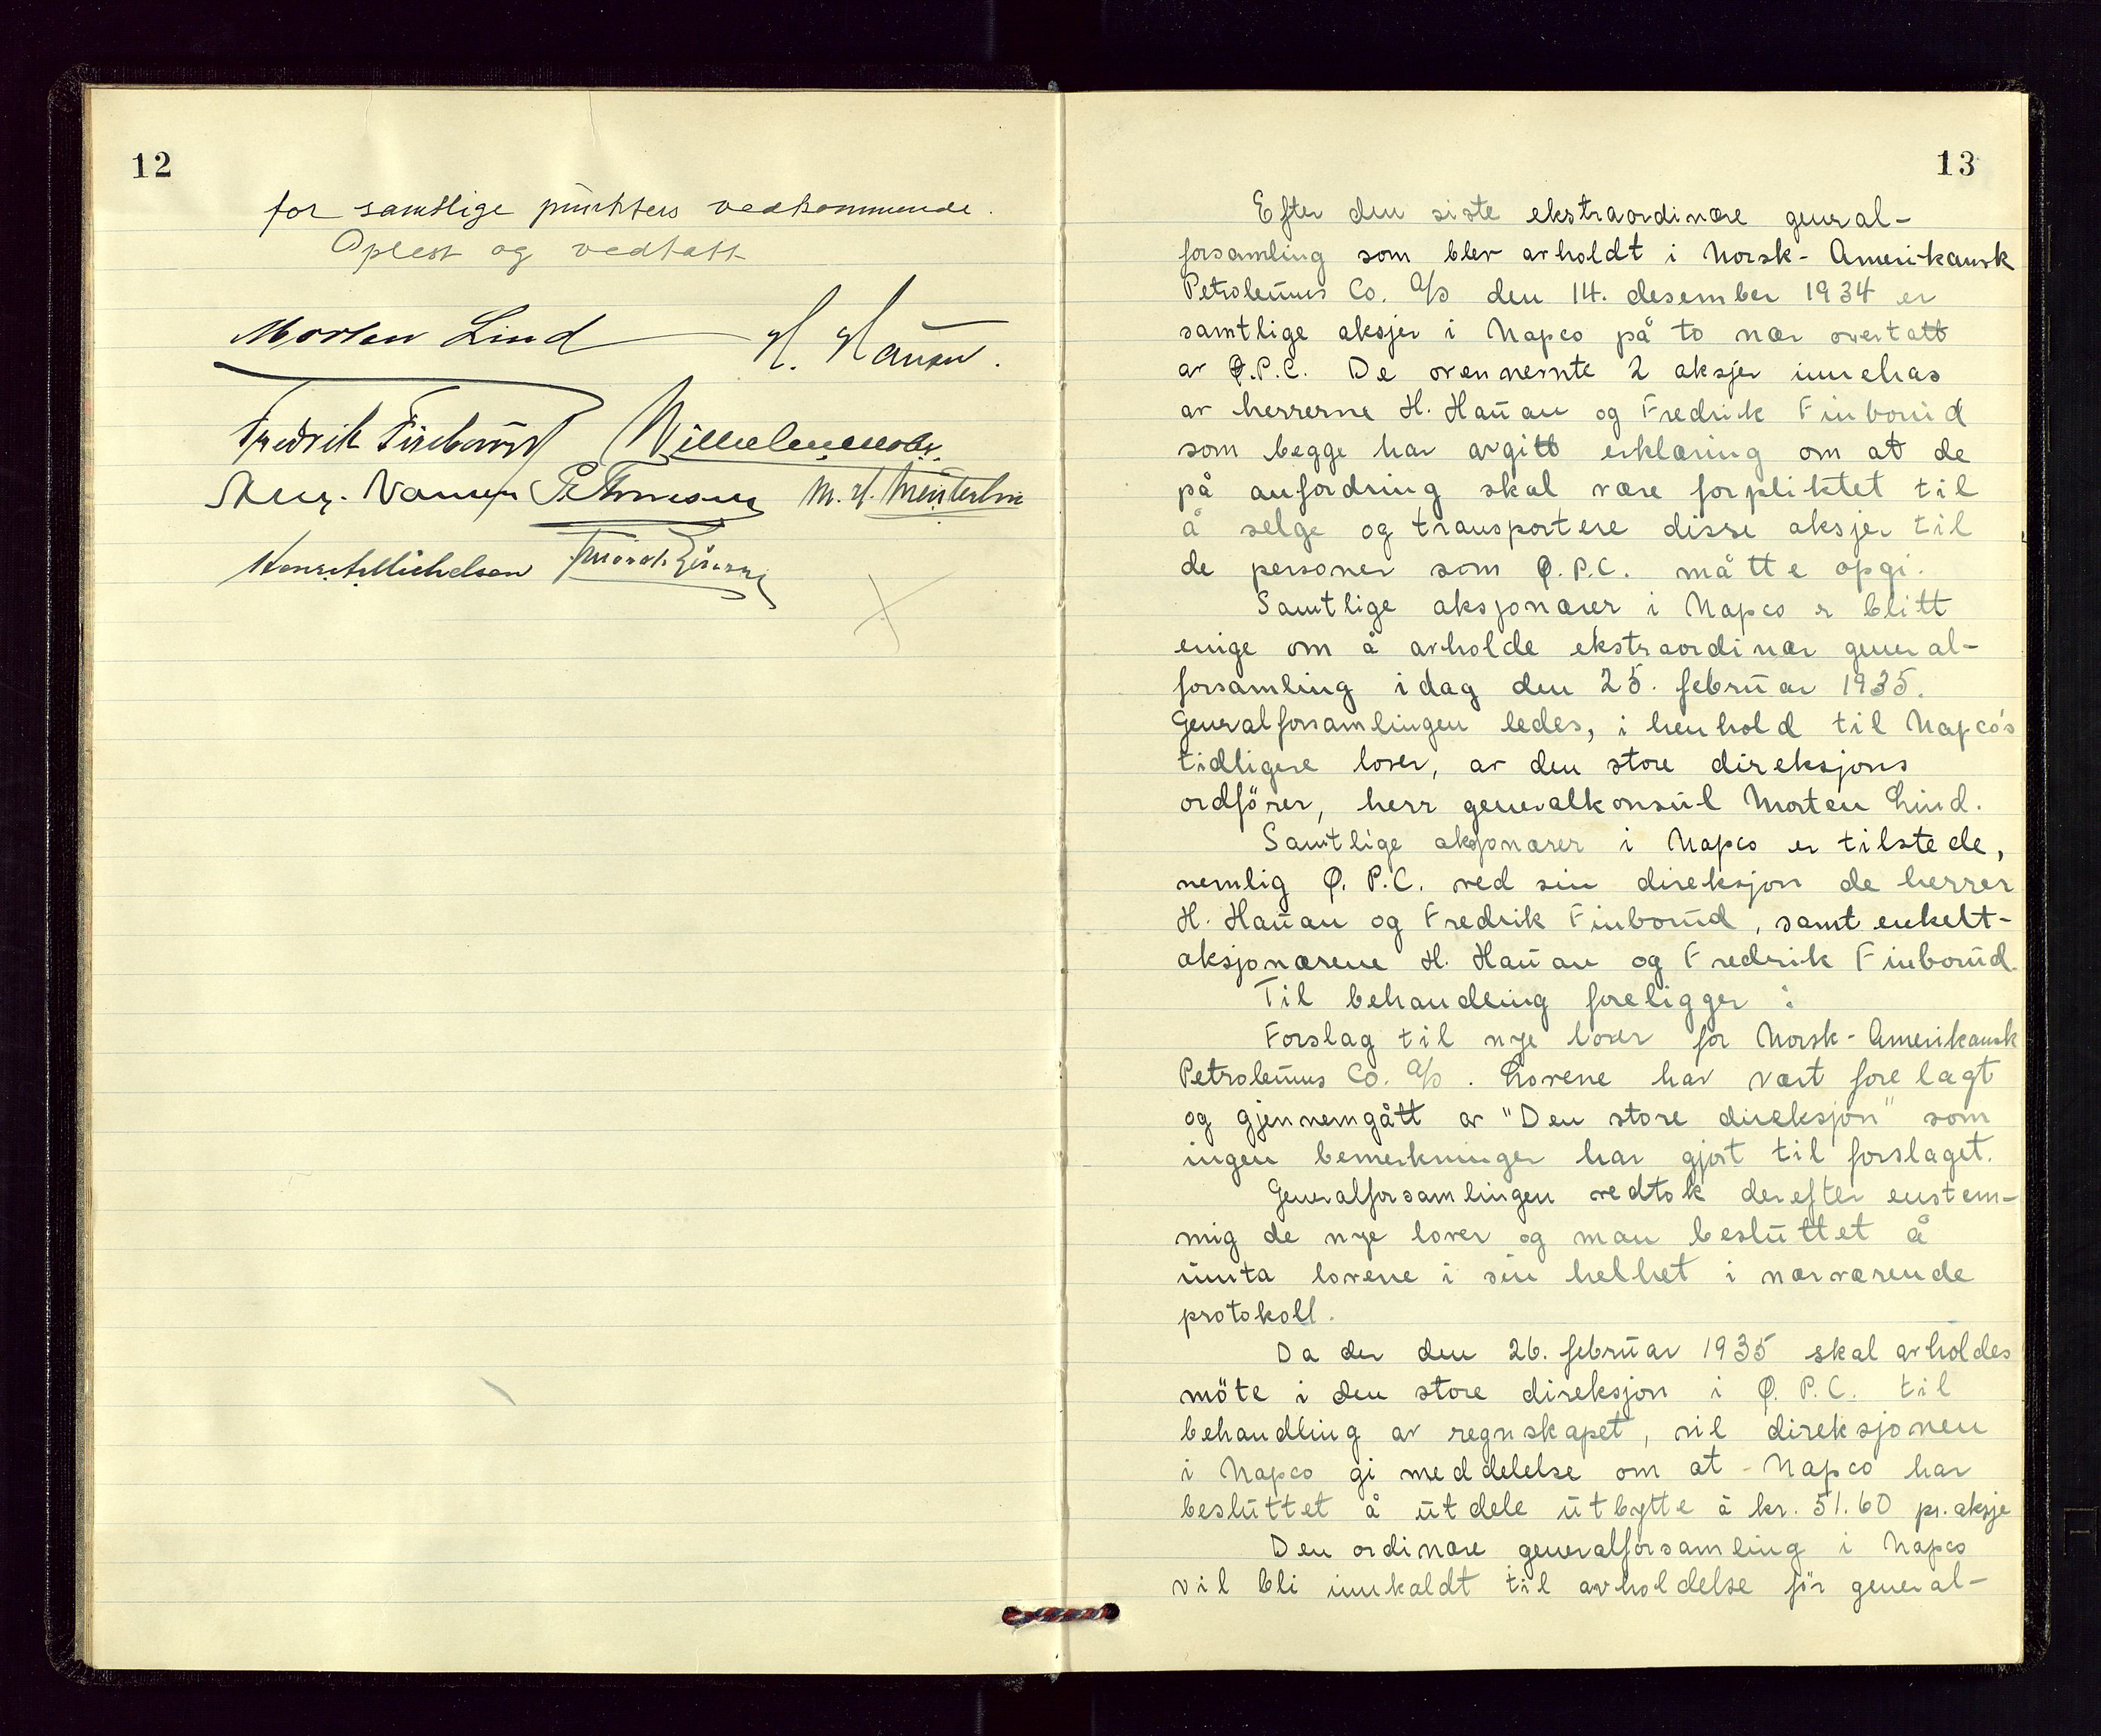 12
for samtlige punkters vedkommende.
Oplest og vedtatt
Morten Lind H. Hauan.
Fredrik Finborud
M. H.
Michelsen
13
Efter den siste ekstraordinære general-
forsamling som blev avholdt i Norsk-Amerikansk
Petroleums Co. A/S den 14. desember 1934 er
samtlige aksjer i Napco på to nær overtatt
av Ø.P.C. De ovennevnte 2 aksjer innehas
av herrerne H. Hauan og Fredrik Finborud
som begge har avgitt erklæring om at de
på anfordring skal være forpliktet til
å selge og transportere disse aksjer til
de personer som Ø.P.C. måtte opgi.
Samtlige aksjonærer i Napco er blitt
enige om å avholde ekstraordinær general-
forsamling idag den 25. februar 1935.
Generalforsamlingen ledes, i henhold til Napco's
tidligere lover, av den store direksjons
ordförer, herr generalkonsul Morten Lind.
Samtlige aksjonærer i Napco er tilstede,
nemlig Ø.P.C. ved sin direksjon de herrer
H. Hauan og Fredrik Finborud, samt enkelt-
aksjonærene H. Hauan og Fredrik Finborud.
Til behandling foreligger :
Forslag til nye lover for Norsk-Amerikansk
Petroleums Co. A/S. Lovene har vært forelagt
og gjennemgått av "Den store direksjon" som
ingen bemerkninger har gjort til forslaget.
Generalforsamlingen vedtok derefter enstem-
mig de nye lover og man besluttet å
innta lovene i sin helhet i nærværende
protokoll.
Da der den 26. februar 1935 skal avholdes
möte i den store direksjon i Ø.P.C. til
behandling av regnskapet, vil direksjonen
i Napco gi meddelelse om at Napco har
besluttet å utdele utbytte à kr. 51.60 pr. aksje
Den ordinære generalforsamling i Napco
vil bli innkaldt til avholdelse för general-